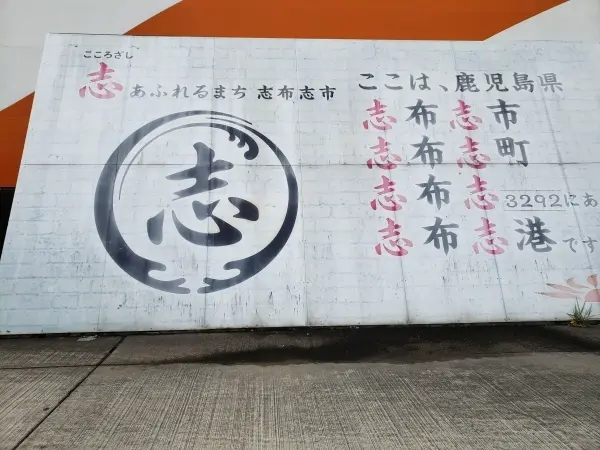 こころざし
志あふれるまち 志布志市
志
ここは、鹿児島県
志布志市
志布志町
志布志3292にあ
志布志港です